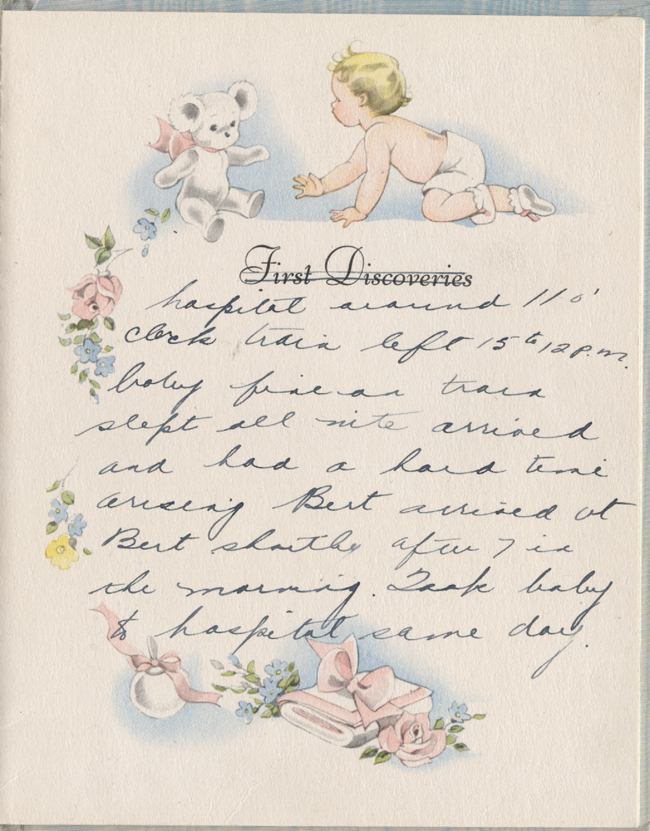 First Discoveries
hospital around 11 o'
clock train left 15 to 12 P.M.
baby fine on train
slept all nite arrived
and had a hard time
arising Bert arrived at
Bert shortly after 7 in
the morning. Took baby
to hospital same day.